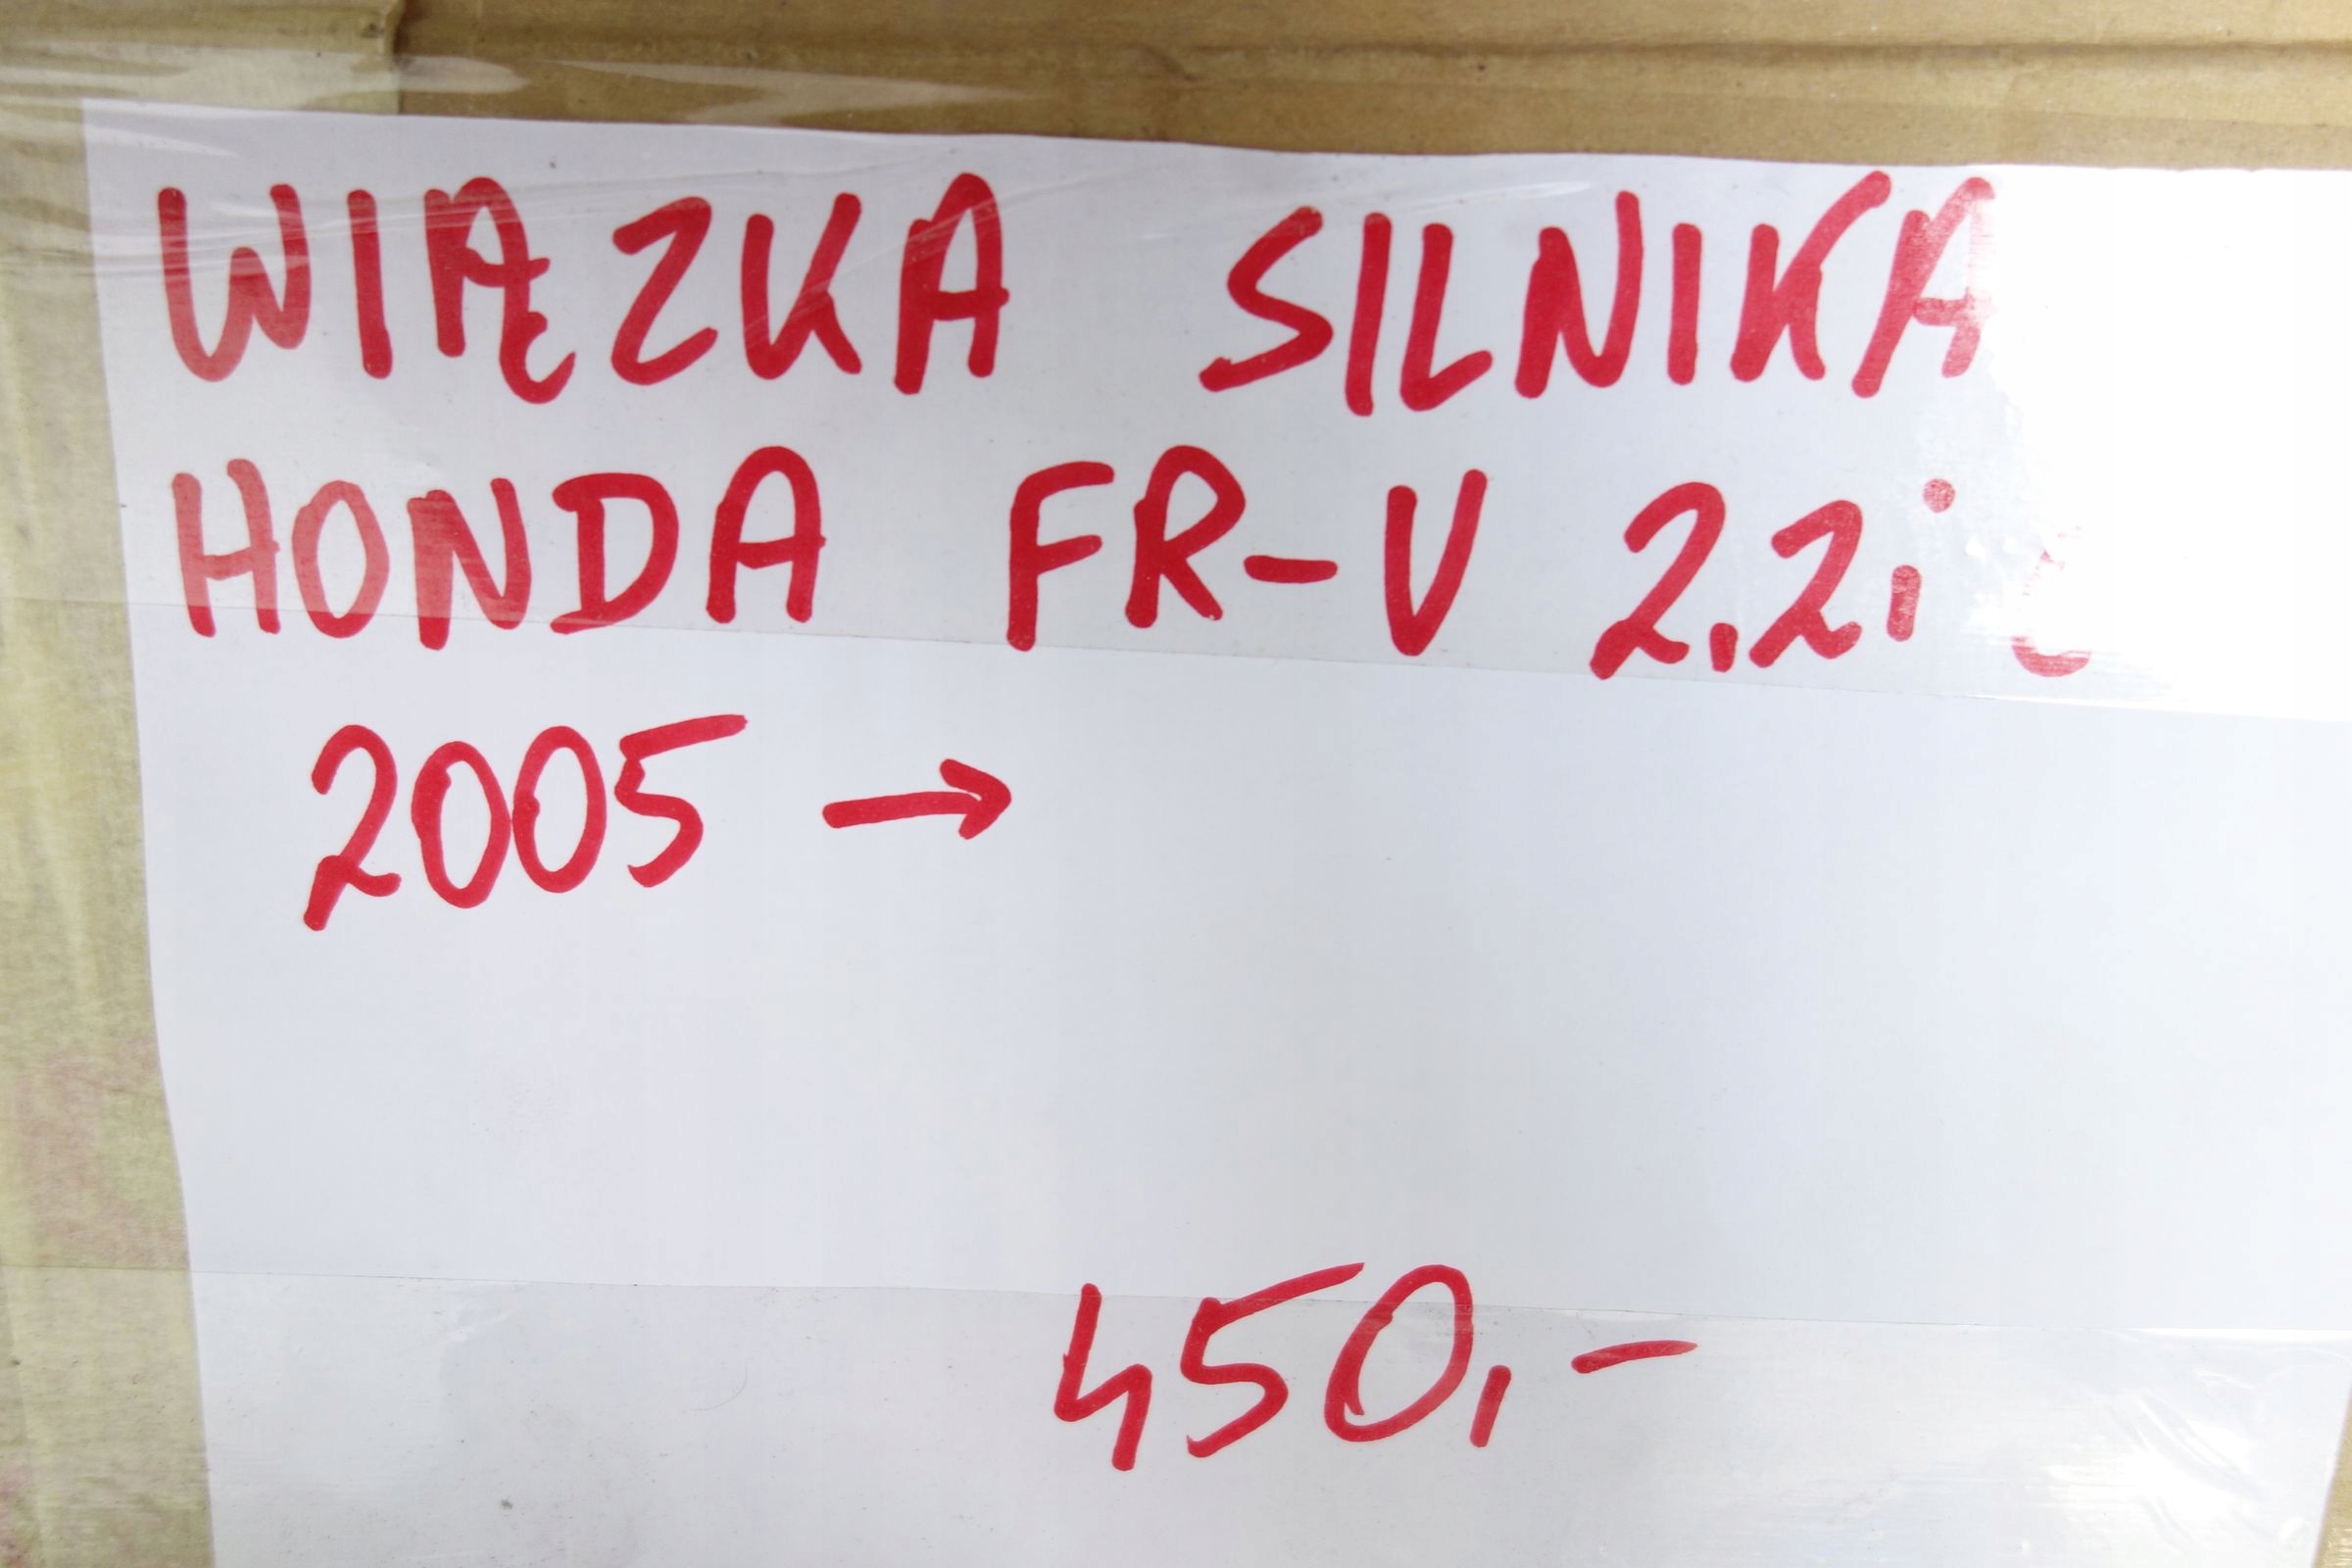 WIĄZKA SILNIKA
HONDA FR-V 2.2i
2005 →
450,-